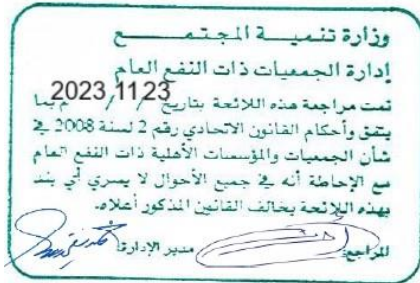 وزارة تنميـــة المجتمـــــــع
إدارة الجمعيات ذات النفع العام
تمت مراجعة هذه اللائحة بتاريخ 2023 / 11 / 23 م بما
يتفق وأحكام القانون الاتحادي رقم 2 لسنة 2008 في
شأن الجمعيات والمؤسسات الأهلية ذات النفع العام
مع الإحاطة أنه في جميع الأحوال لا يسري أي بند
بهذه اللائحة يخالف القانون المذكور أعلاه.
المراجع مدير الإدارة